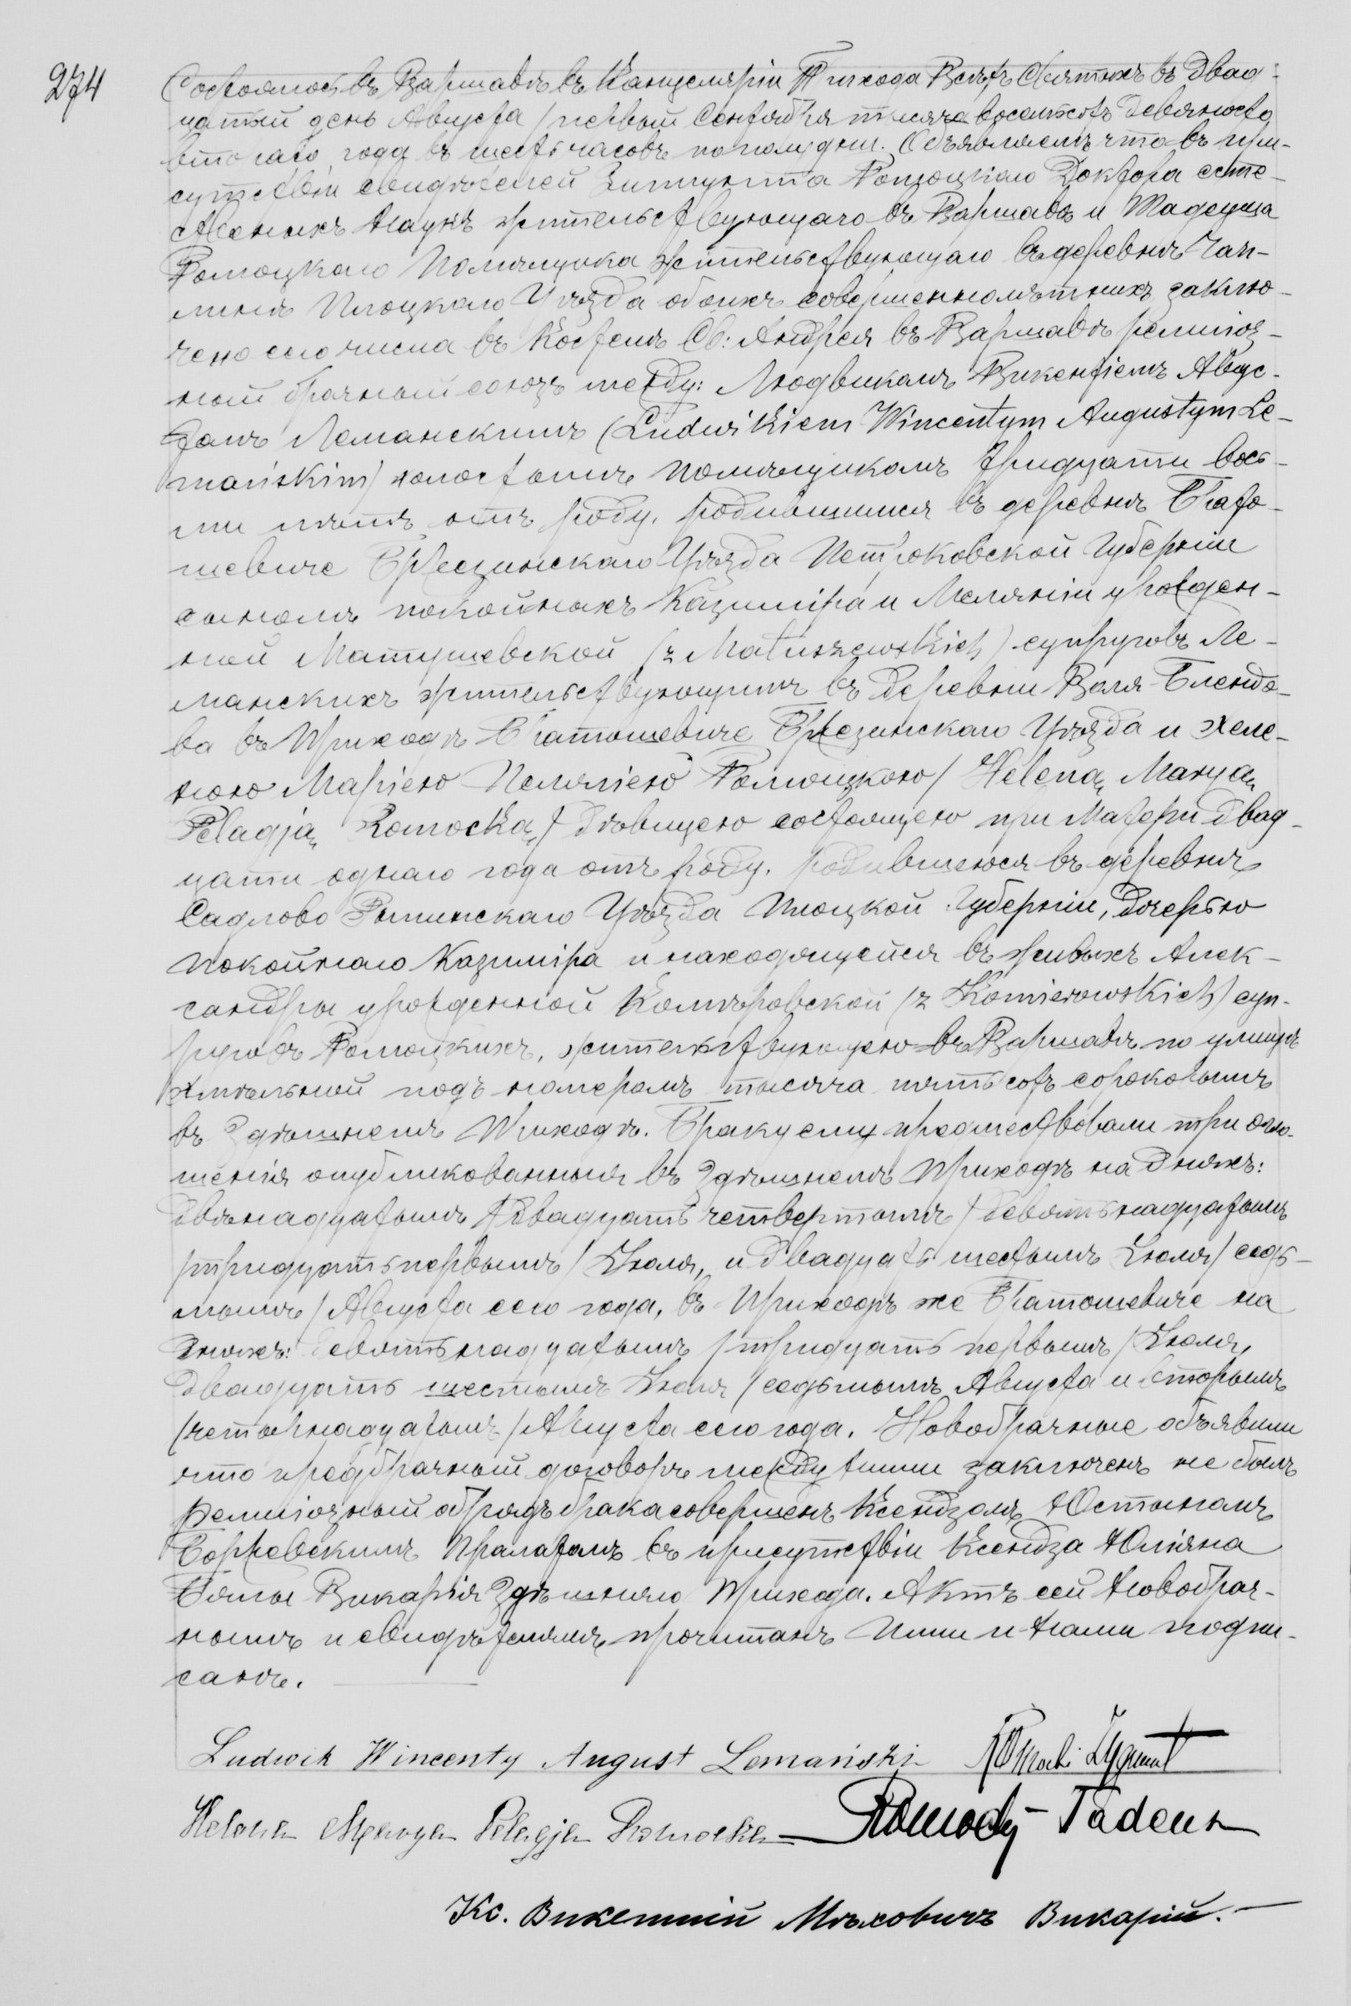 274
Состоялось въ Варшавѣ въ Канцеляріи Прихода Всѣхъ Святыхъ въ Двад-
цатый день Августа /первый Сентября тысяча восемьсотъ девяносто
втораго года въ шесть часовъ пополудни. Объявляемъ что въ при-
сутствіи свидѣтелей Зигмунта Ромоцкаго Доктора есте-
ственныхъ Наукъ жительствующаго въ Варшавѣ и Тадеуша
Ромоцкаго Помѣщика жительствующаго въ деревнѣ
Плоцкаго Уѣзда обоихъ совершеннолѣтнихъ, заклю-
чено сего числа въ Костелѣ Св: Андрея въ Варшавѣ религіоз-
ный брачный союзъ между: Людвикомъ Викентіемъ Авгус-
томъ Леманскимъ (Ludwikiem Wincentym Augustym Le-
mańskim) холостымъ помѣщикомъ тридцати вось-
ми лѣтъ отъ роду, родившимся въ деревнѣ Брато-
шевиче Брезинскаго Уѣзда Петроковской Губерніи
сыномъ покойныхъ Казимира и Меляніи урожден-
ной Матушевской (z Matuszewskich) супруговъ Ле-
манскихъ жительствующимъ въ деревни Воля-Блендо-
ва въ Приходѣ Братошевиче Брезинскаго Уѣзда и Хеле-
ною Маріею Пелягіею Ромоцкою /Heleną Maryą
Pelagją Romocką/ дѣвицею состоящею при Матери двад-
цати одного года отъ роду, родившеюся въ деревнѣ
Садлово Рыпинскаго Уѣзда Плоцкой Губерніи, дочерью
покойнаго Казимира и находящейся въ живыхъ Алек-
сандры урожденной Комѣровской (z Komierowskich) суп-
руговъ Ромоцкихъ, жительствующею въ Варшавѣ по улицѣ
Хмѣльной подъ номеромъ тысяча пятьсотъ сороковымъ
въ Здѣшнемъ Приходѣ. Браку сему предшествовали три огло-
шенія опубликованныя въ Здѣшнемъ Приходѣ на дняхъ:
двѣнадцатымъ /двадцать четвертымъ/ девятьнадцатымъ
/тридцать первымъ/ Іюля, и двадцать шестымъ Іюля /седь-
мымъ/ Августа сего года, въ Приходѣ же Братошевиче на
дняхъ: девятьнадцатымъ /тридцать первымъ/ Іюля,
двадцать шестымъ Іюля /седьмымъ Августа и вторымъ
/четырнадцатымъ/ Августа сего года. Новобрачные объявили
что предбрачный договоръ между ними заключенъ не былъ
Религіозный обрядъ брака совершенъ Ксендзомъ Юстыномъ
Боржевскимъ Пралатомъ въ присутствіи Ксендза Юліяна
Викарія Здѣшняго Прихода. Актъ сей Новобрач-
нымъ и свидѣтелямъ прочитанъ Ими и Нами подпи-
санъ.
Ludwik Wincenty August Lemański Romocki Zygmunt
Helena Marya Pelagja Romocka Romocki Tadeusz
Кс. Викентій Мѣховичъ Викарій.